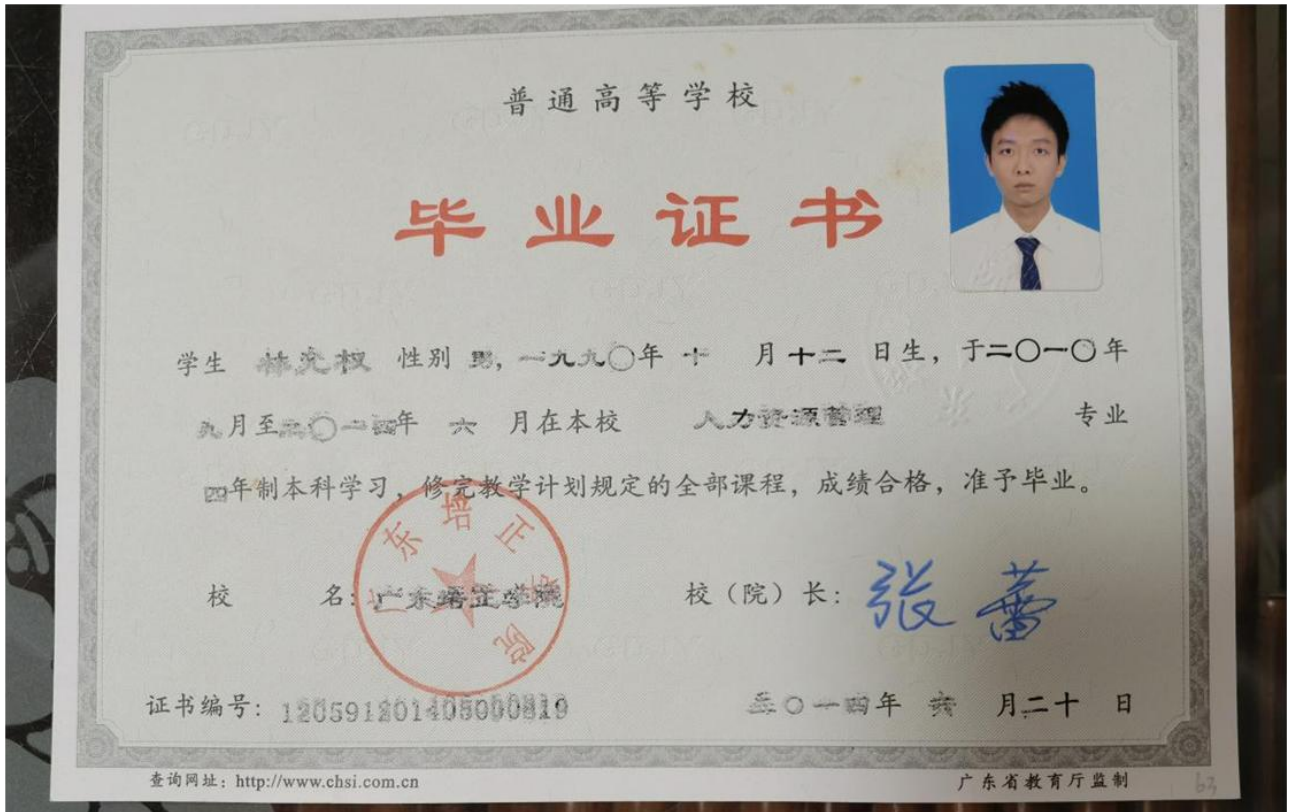 普通高等学校
毕业证书
学生 林 权 性别 男，一九九〇年 十 月 十二 日生，于二〇一〇年
九月至二〇一四年 六 月在本校 人力资源管理 专业
四年制本科学习，修完教学计划规定的全部课程，成绩合格，准予毕业。
校 名：广东培正学院 校（院）长：张蕾
广东培正学院
证书编号：120591201405000819 二〇一四年 六 月二十 日
查询网址：http://www.chsi.com.cn 广东省教育厅监制
63